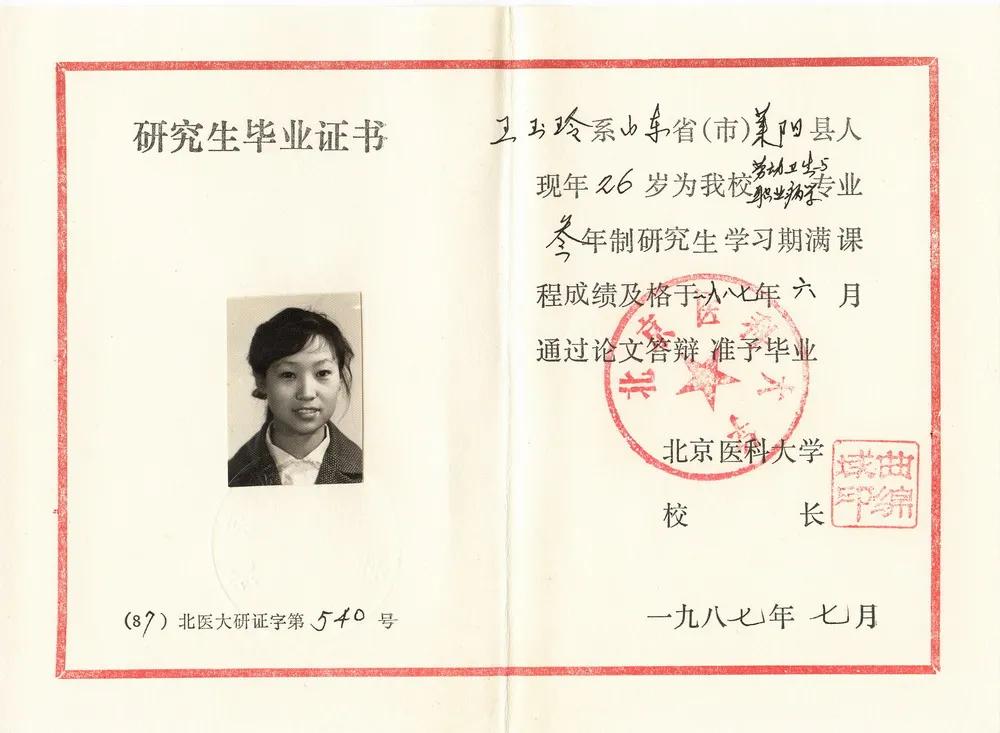 研究生毕业证书
(87) 北医大研证字第 540 号
王玉玲系山东省(市)莱阳县人
现年 26 岁为我校劳动卫生与职业病学专业
叁年制研究生学习期满课
程成绩及格于一九八七年六月
通过论文答辩 准予毕业
北京医科大学
校 长
一九八七年 七月
北京医科大学
曲绵域印